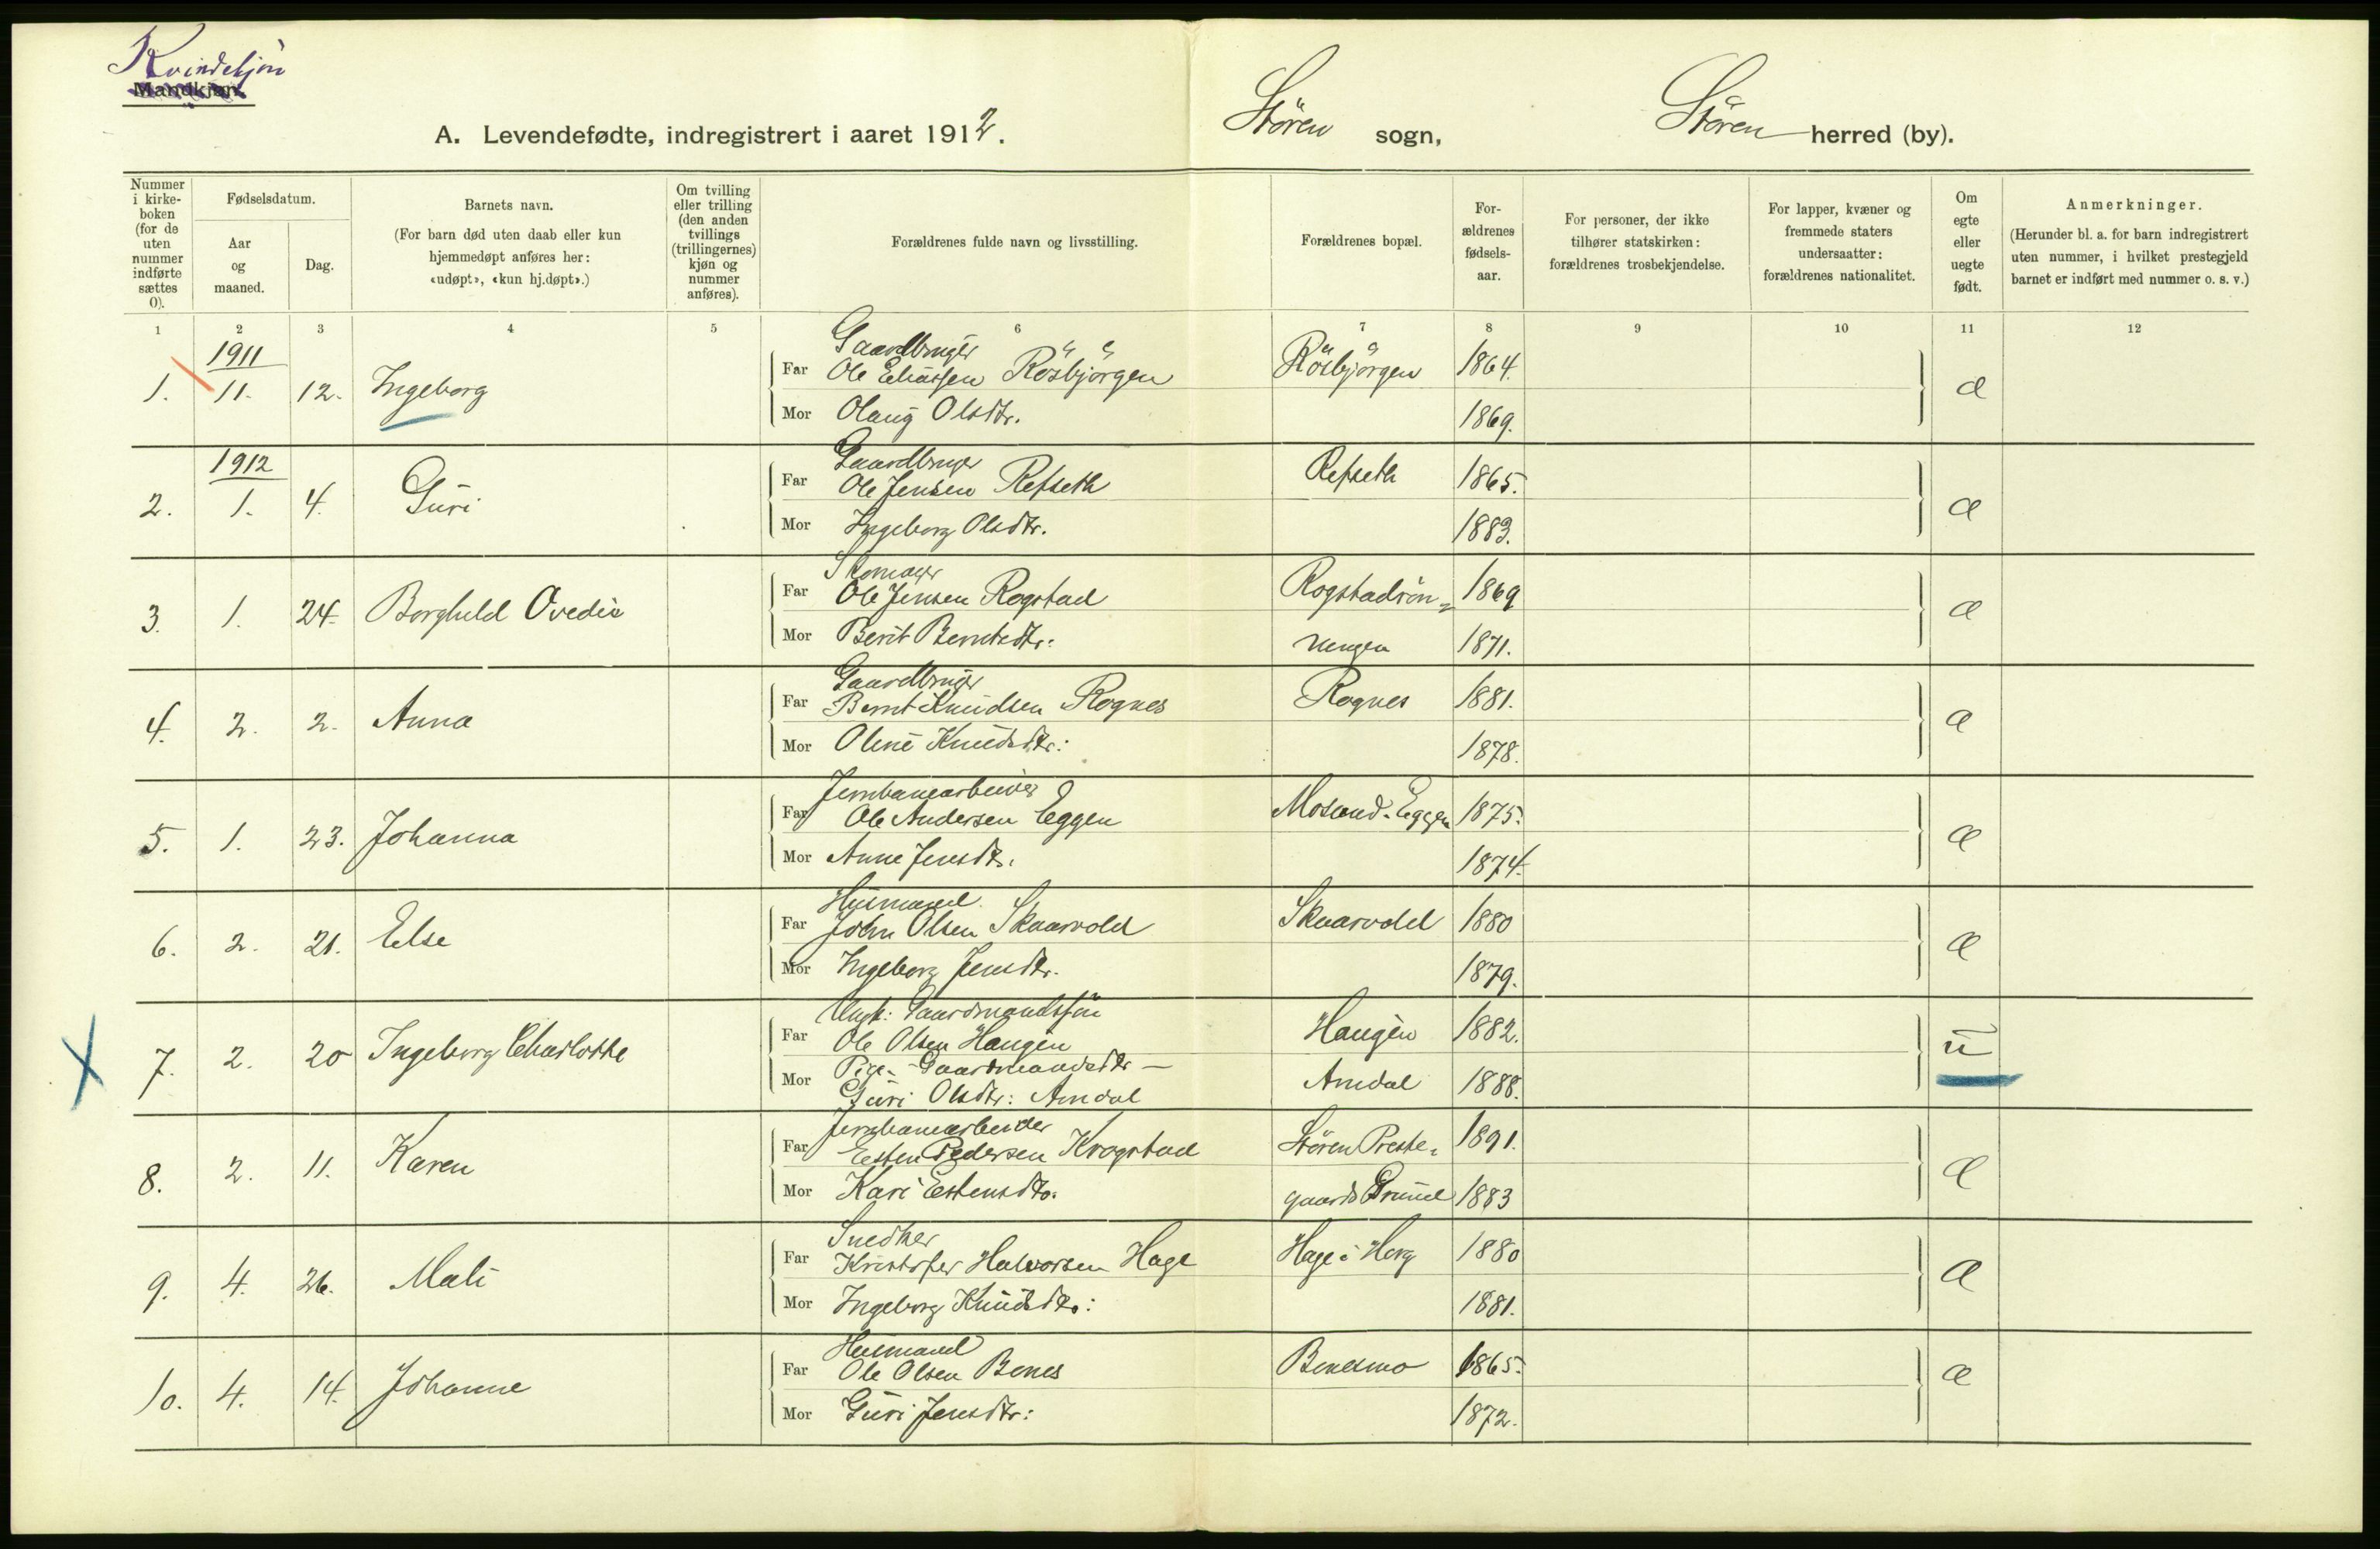 Kvindekjøn
Mandkjøn.
A. Levendefødte, indregistrert i aaret 1912.
Støren sogn, Støren herred (by).
Nummer i kirkeboken (for de uten nummer indførte sættes 0).
Fødselsdatum.
Aar og maaned.
Dag.
Barnets navn.
(For barn død uten daab eller kun hjemmedøpt anføres her: «udøpt», «kun hj.døpt».)
Om tvilling eller trilling (den anden tvillings (trillingernes) kjøn og nummer anføres).
Forældrenes fulde navn og livsstilling.
Forældrenes bopæl.
Forældrenes fødselsaar.
For personer, der ikke tilhører statskirken: forældrenes trosbekjendelse.
For lapper, kvæner og fremmede staters undersaatter: forældrenes nationalitet.
Om egte eller uegte født.
Anmerkninger.
(Herunder bl. a. for barn indregistrert uten nummer, i hvilket prestegjeld barnet er indført med nummer o. s. v.)
1 2 3 4 5 6 7 8 9 10 11 12
1911 Gaardbruger
1. 11. 12. Ingeborg Far Ole Eliassen Røsbjørgen Røsbjørgen 1864. æ
Mor Olaug Olsdtr. 1869.
1912 Gaardbruger
2. 1. 4. Guri Far Ole Jensen Refseth Refseth 1865. æ
Mor Ingeborg Olsdtr. 1883.
Skomager
3. 1. 24. Borghild Ovedie Far Ole Jensen Rogstad Rogstadrøn- 1869 æ
Mor Berit Berntsdtr: ningen 1871.
Gaardbruger
4. 2. 2. Anna Far Bernt Knudsen Rognes Rognes 1881. æ
Mor Oline Knudsdtr: 1878.
Jernbanearbeider
5. 1. 23. Johanna Far Ole Andersen Eggen Mosand-Eggen 1875. æ
Mor Anne Jensdtr. 1874.
Husmand
6. 2. 21. Else Far John Olsen Skaarvold Skaarvold 1880 æ
Mor Ingeborg Jensdtr. 1879.
Ungk: Gaardmandssøn
7. 2. 20 Ingeborg Charlotte Far Ole Olsen Haugen Haugen 1882. u
Mor Pige- Gaardmandsdtr — Amdal 1888.
Guri Olsdtr: Amdal
Jernbanearbeider
8. 2. 11. Karen Far Esten Pedersen Krogstad Støren Preste- 1891. æ
Mor Kari Estensdtr. gaards Grund 1883
Snedker
9. 4. 26. Mali Far Kristofer Halvorsen Hage Hage i Horg 1880 æ
Mor Ingeborg Knudsdtr: 1881.
Husmand
10. 4. 14. Johanne Far Ole Olsen Bones Bonesmo 1865. æ
Mor Guri Jensdtr: 1872.